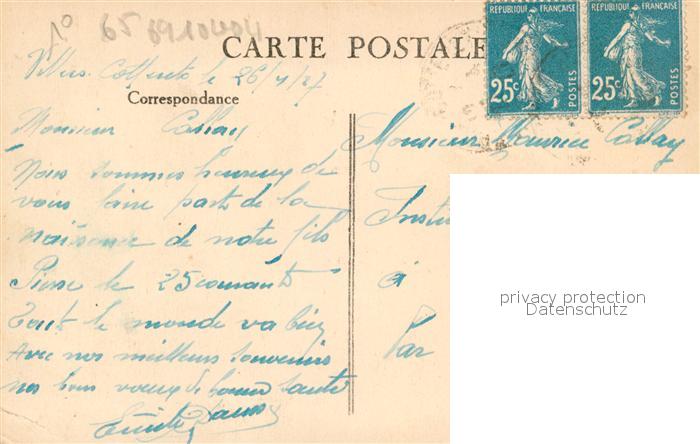 65 8910404
CARTE POSTALE
REPUBLIQUE FRANÇAISE
25c
POSTES
REPUBLIQUE FRANÇAISE
25c
POSTES
Villers Cotterets le 26/4/27
Correspondance
Monsieur
Nous sommes heureux de
vous faire part de la
naissance de notre fils
Pierre le 25 courant
Tout le monde va bien
Avec nos meilleurs souvenirs
nos bons voeux de bonne santé
Monsieur Maurice
Insti
à
Par
privacy protection
Datenschutz